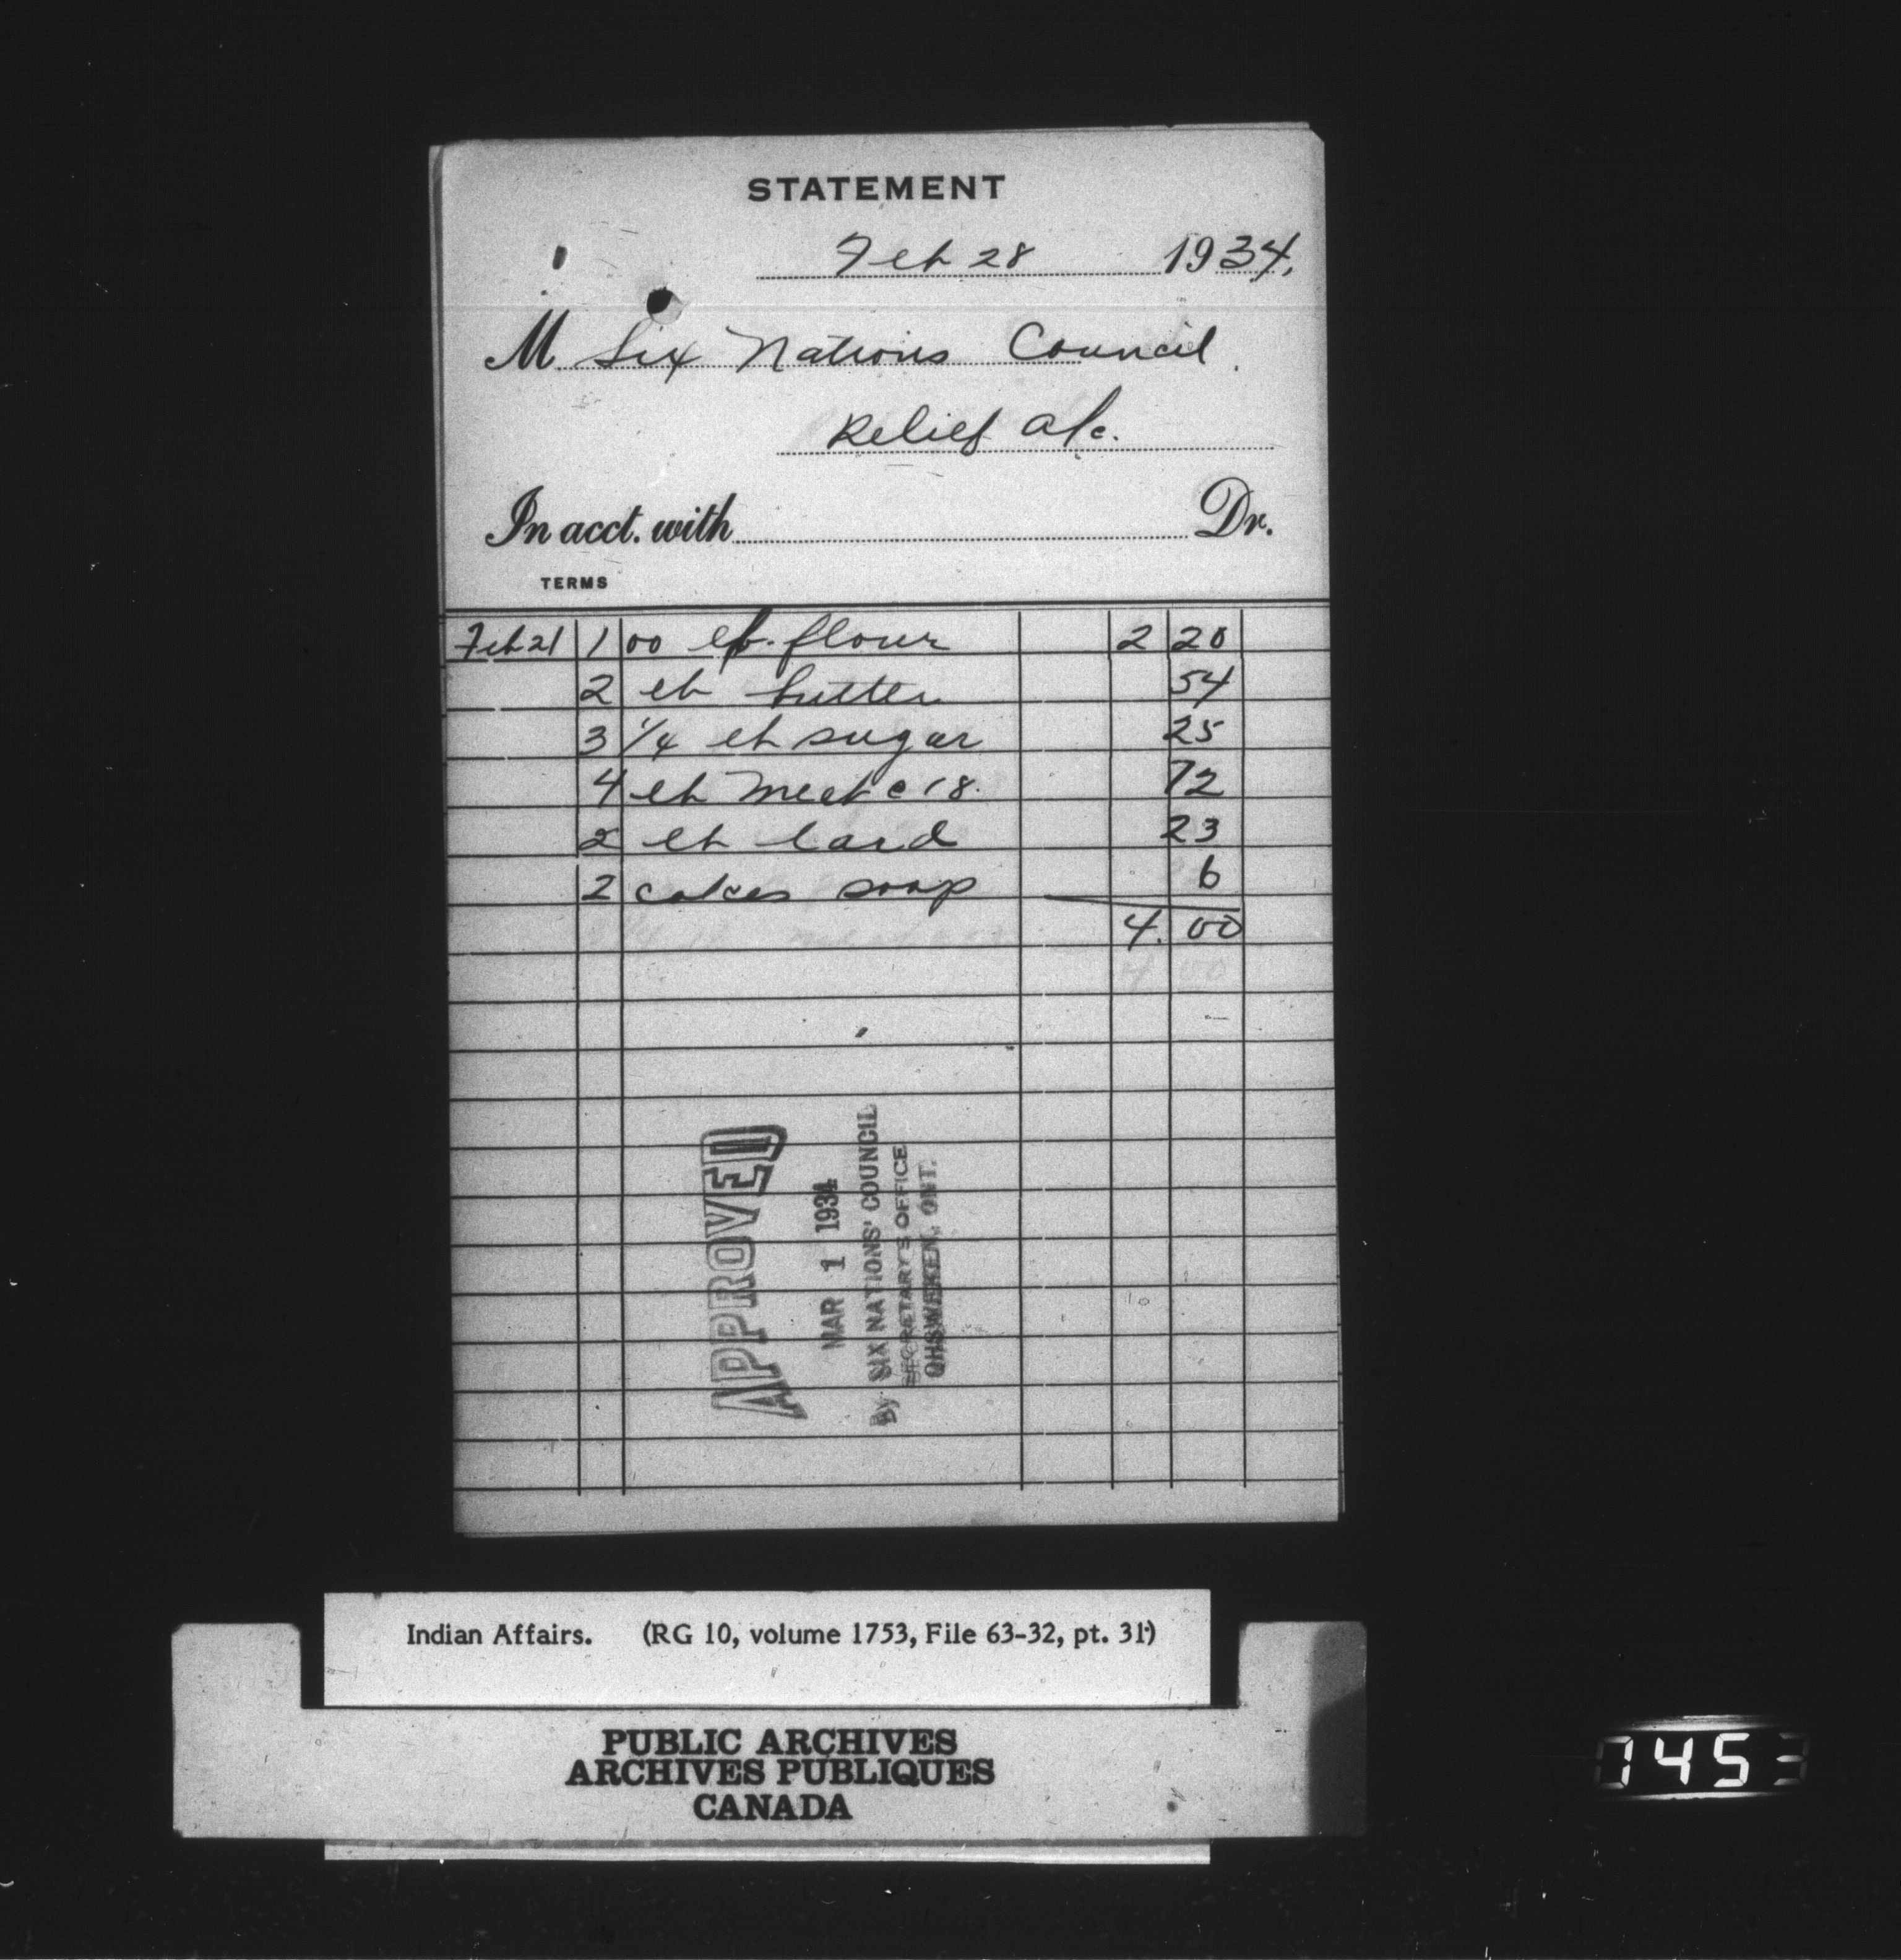 STATEMENT
Feb 28 1934,
M Six Nations Council.
Relief a/c.
In acct. with Dr.
TERMS
Feb 21 100 lb. flour 2 20
2 lb butter 54
3 1/4 lb sugar 25
4 lb meet @ 18. 72
2 lb lard 23
2 cakes soap 6
4. 00
4 00
APPROVED
MAR 1 1934
By SIX NATIONS' COUNCIL
SECRETARY'S OFFICE
OHSWEKEN, ONT.
Indian Affairs. (RG 10, volume 1753, File 63-32, pt. 31)
PUBLIC ARCHIVES
ARCHIVES PUBLIQUES
CANADA
1453